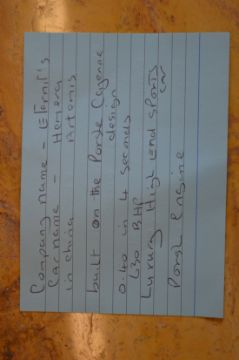 Company name -
Car name - Hemera
in china Artemis
built on the Porshe Cayenne
design
0-60 in 4 seconds
630 BHP
Luxury High end sports
car
Porsh Engine